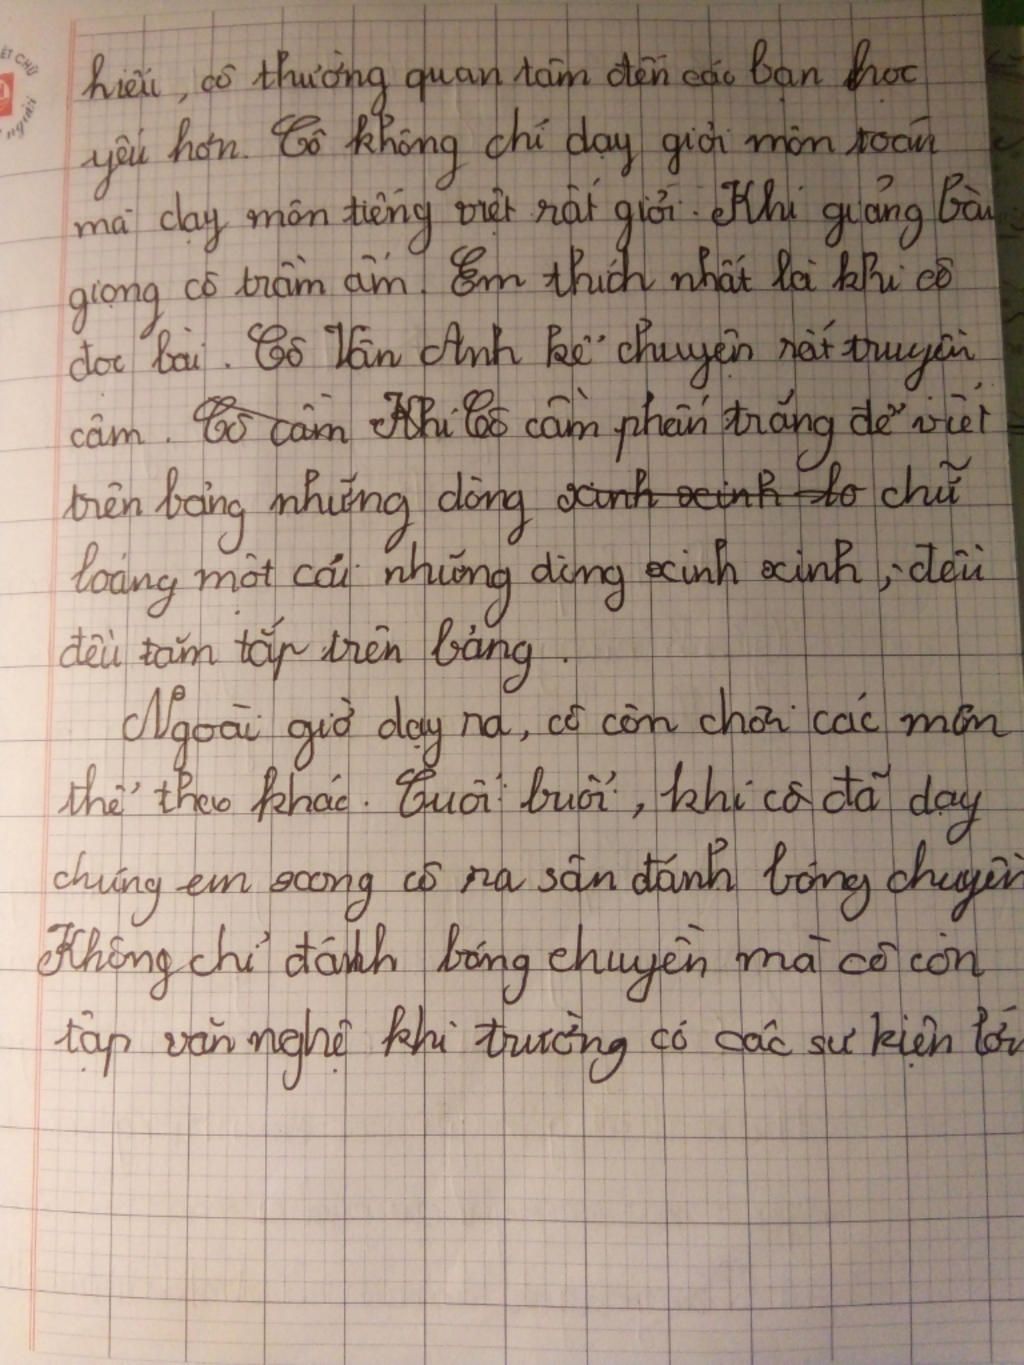 hiểu, cô thường quan tâm đến các bạn học
yếu hơn. Cô không chỉ dạy giỏi môn toán
mà dạy môn tiếng việt rất giỏi. Khi giảng bài
giọng cô trầm ấm. Em thích nhất là khi cô
đọc bài. Cô Vân Anh kể chuyện rất truyền
cảm. Cô cầm Khi Cô cầm phấn trắng để viết
trên bảng những dòng xinh xinh lo chữ
loáng một cái những dòng xinh xinh, đều
đều tăm tắp trên bảng.
Ngoài giờ dạy ra, cô còn chơi các môn
thể theo khác. Cuối buổi, khi cô đã dạy
chúng em xoong cô ra sân đánh bóng chuyền
Không chỉ đánh bóng chuyền mà cô còn
tập văn nghệ khi trường có các sự kiện lớn